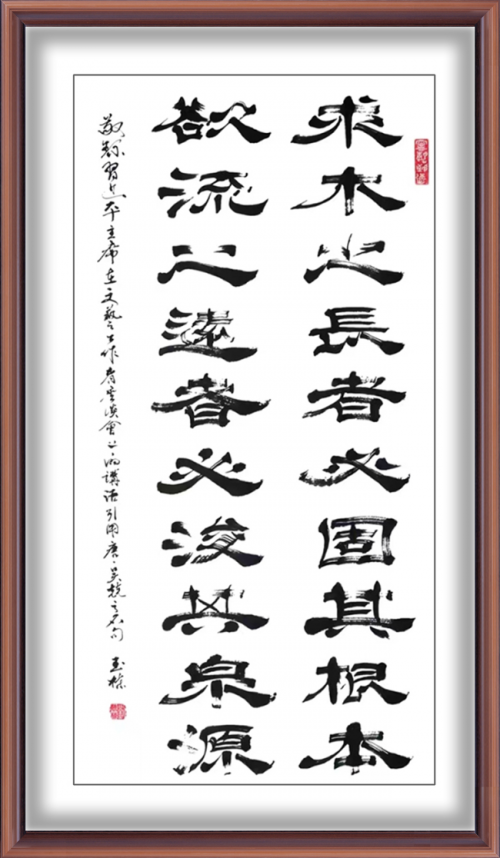 求木之長者必固其根本
欲流之遠者必浚其泉源
敬錄習近平主席在文藝工作者座談會上的講話引用唐·吴兢之名句